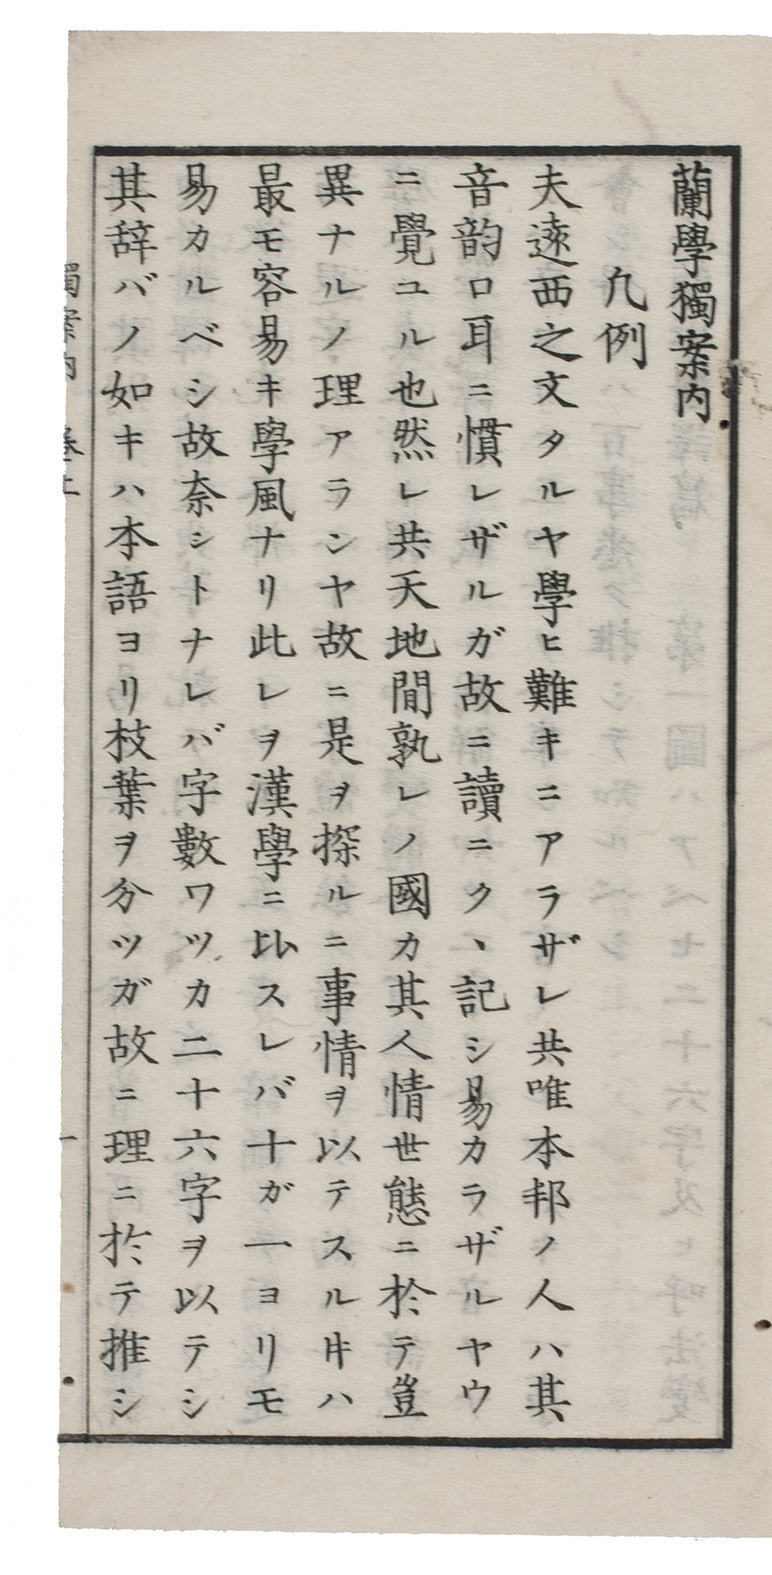 蘭學獨案内
凡例
夫遠西之文タルヤ學ヒ難キニアラザレ共唯本邦ノ人ハ其
音韵ロ耳ニ慣レザルガ故ニ讀ニクヽ記シ易カラザルヤウ
ニ覺ユル也然レ共天地間孰レノ國カ其人情世態ニ於テ豈
異ナルノ理アランヤ故ニ是ヲ探ルニ事情ヲ以テスル㪽ハ
最モ容易キ學風ナリ此レヲ漢學ニ比スレバ十ガ一ヨリモ
易カルベシ故奈シトナレバ字數ワツカ二十六字ヲ以テシ
其辞バノ如キハ本語ヨリ枝葉ヲ分ツガ故ニ理ニ於テ推シ
獨案内 巻上 一